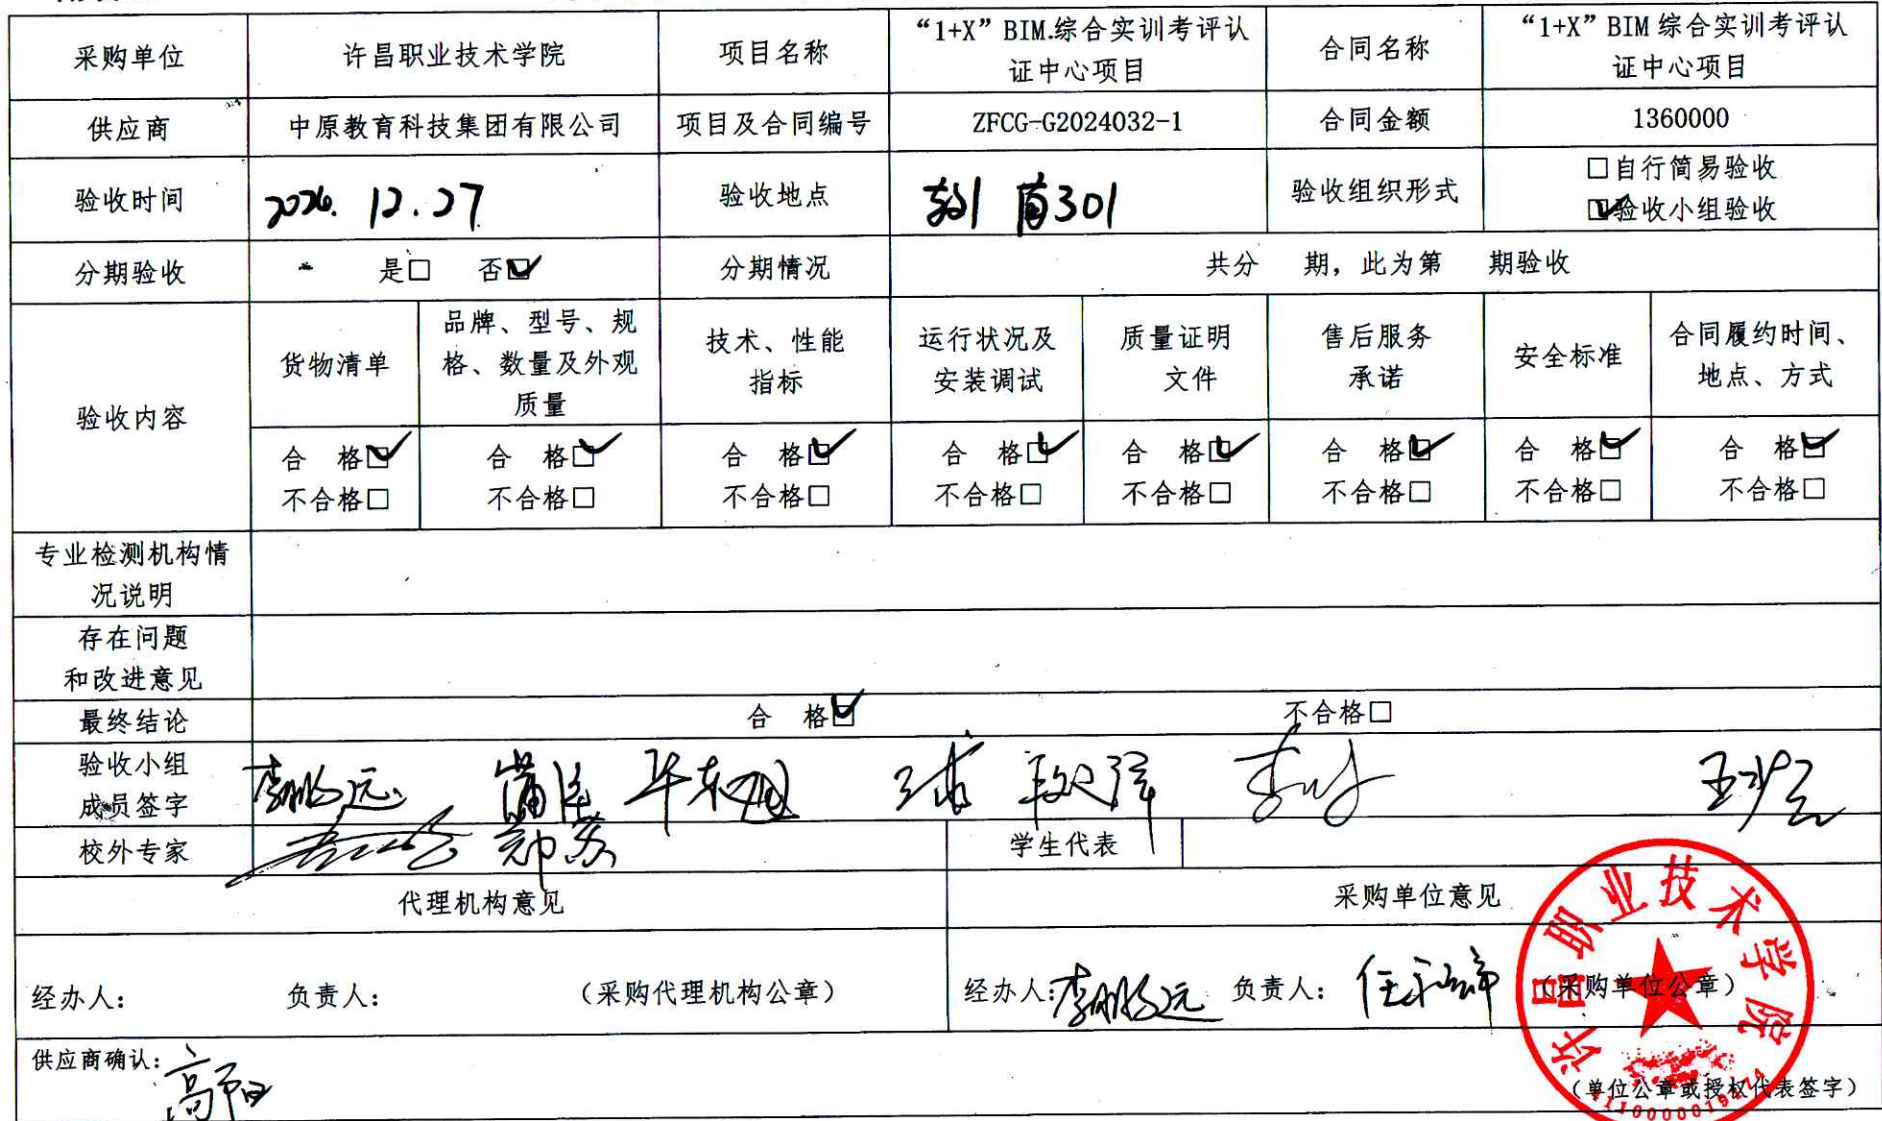 采购单位 许昌职业技术学院 项目名称 “1+X”BIM.综合实训考评认证中心项目 合同名称 “1+X”BIM 综合实训考评认证中心项目
供应商 中原教育科技集团有限公司 项目及合同编号 ZFCG-G2024032-1 合同金额 1360000
验收时间 12.27 验收地点 301 验收组织形式 □自行简易验收
☑验收小组验收
分期验收 是□ 否☑ 分期情况 共分 期，此为第 期验收
验收内容 货物清单 品牌、型号、规格、数量及外观质量 技术、性能指标 运行状况及安装调试 质量证明文件 售后服务承诺 安全标准 合同履约时间、地点、方式
合 格☑ 合 格☑ 合 格☑ 合 格☑ 合 格☑ 合 格☑ 合 格☑ 合 格☑
不合格□ 不合格□ 不合格□ 不合格□ 不合格□ 不合格□ 不合格□ 不合格□
专业检测机构情况说明
存在问题
和改进意见
最终结论 合 格☑ 不合格□
验收小组
成员签字
校外专家 学生代表
代理机构意见 采购单位意见
经办人： 负责人： （采购代理机构公章） 经办人： 负责人： （采购单位公章）
许昌职业技术学院
供应商确认：
（单位公章或授权代表签字）